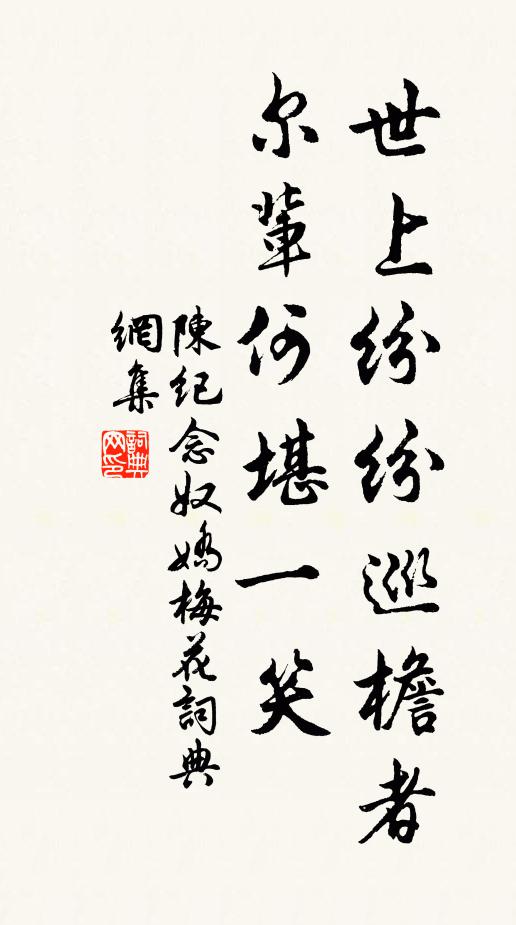 世上纷纷巡檐者
尔輩何堪一笑
陳纪念奴嬌梅花詞典
網集
詞典网印